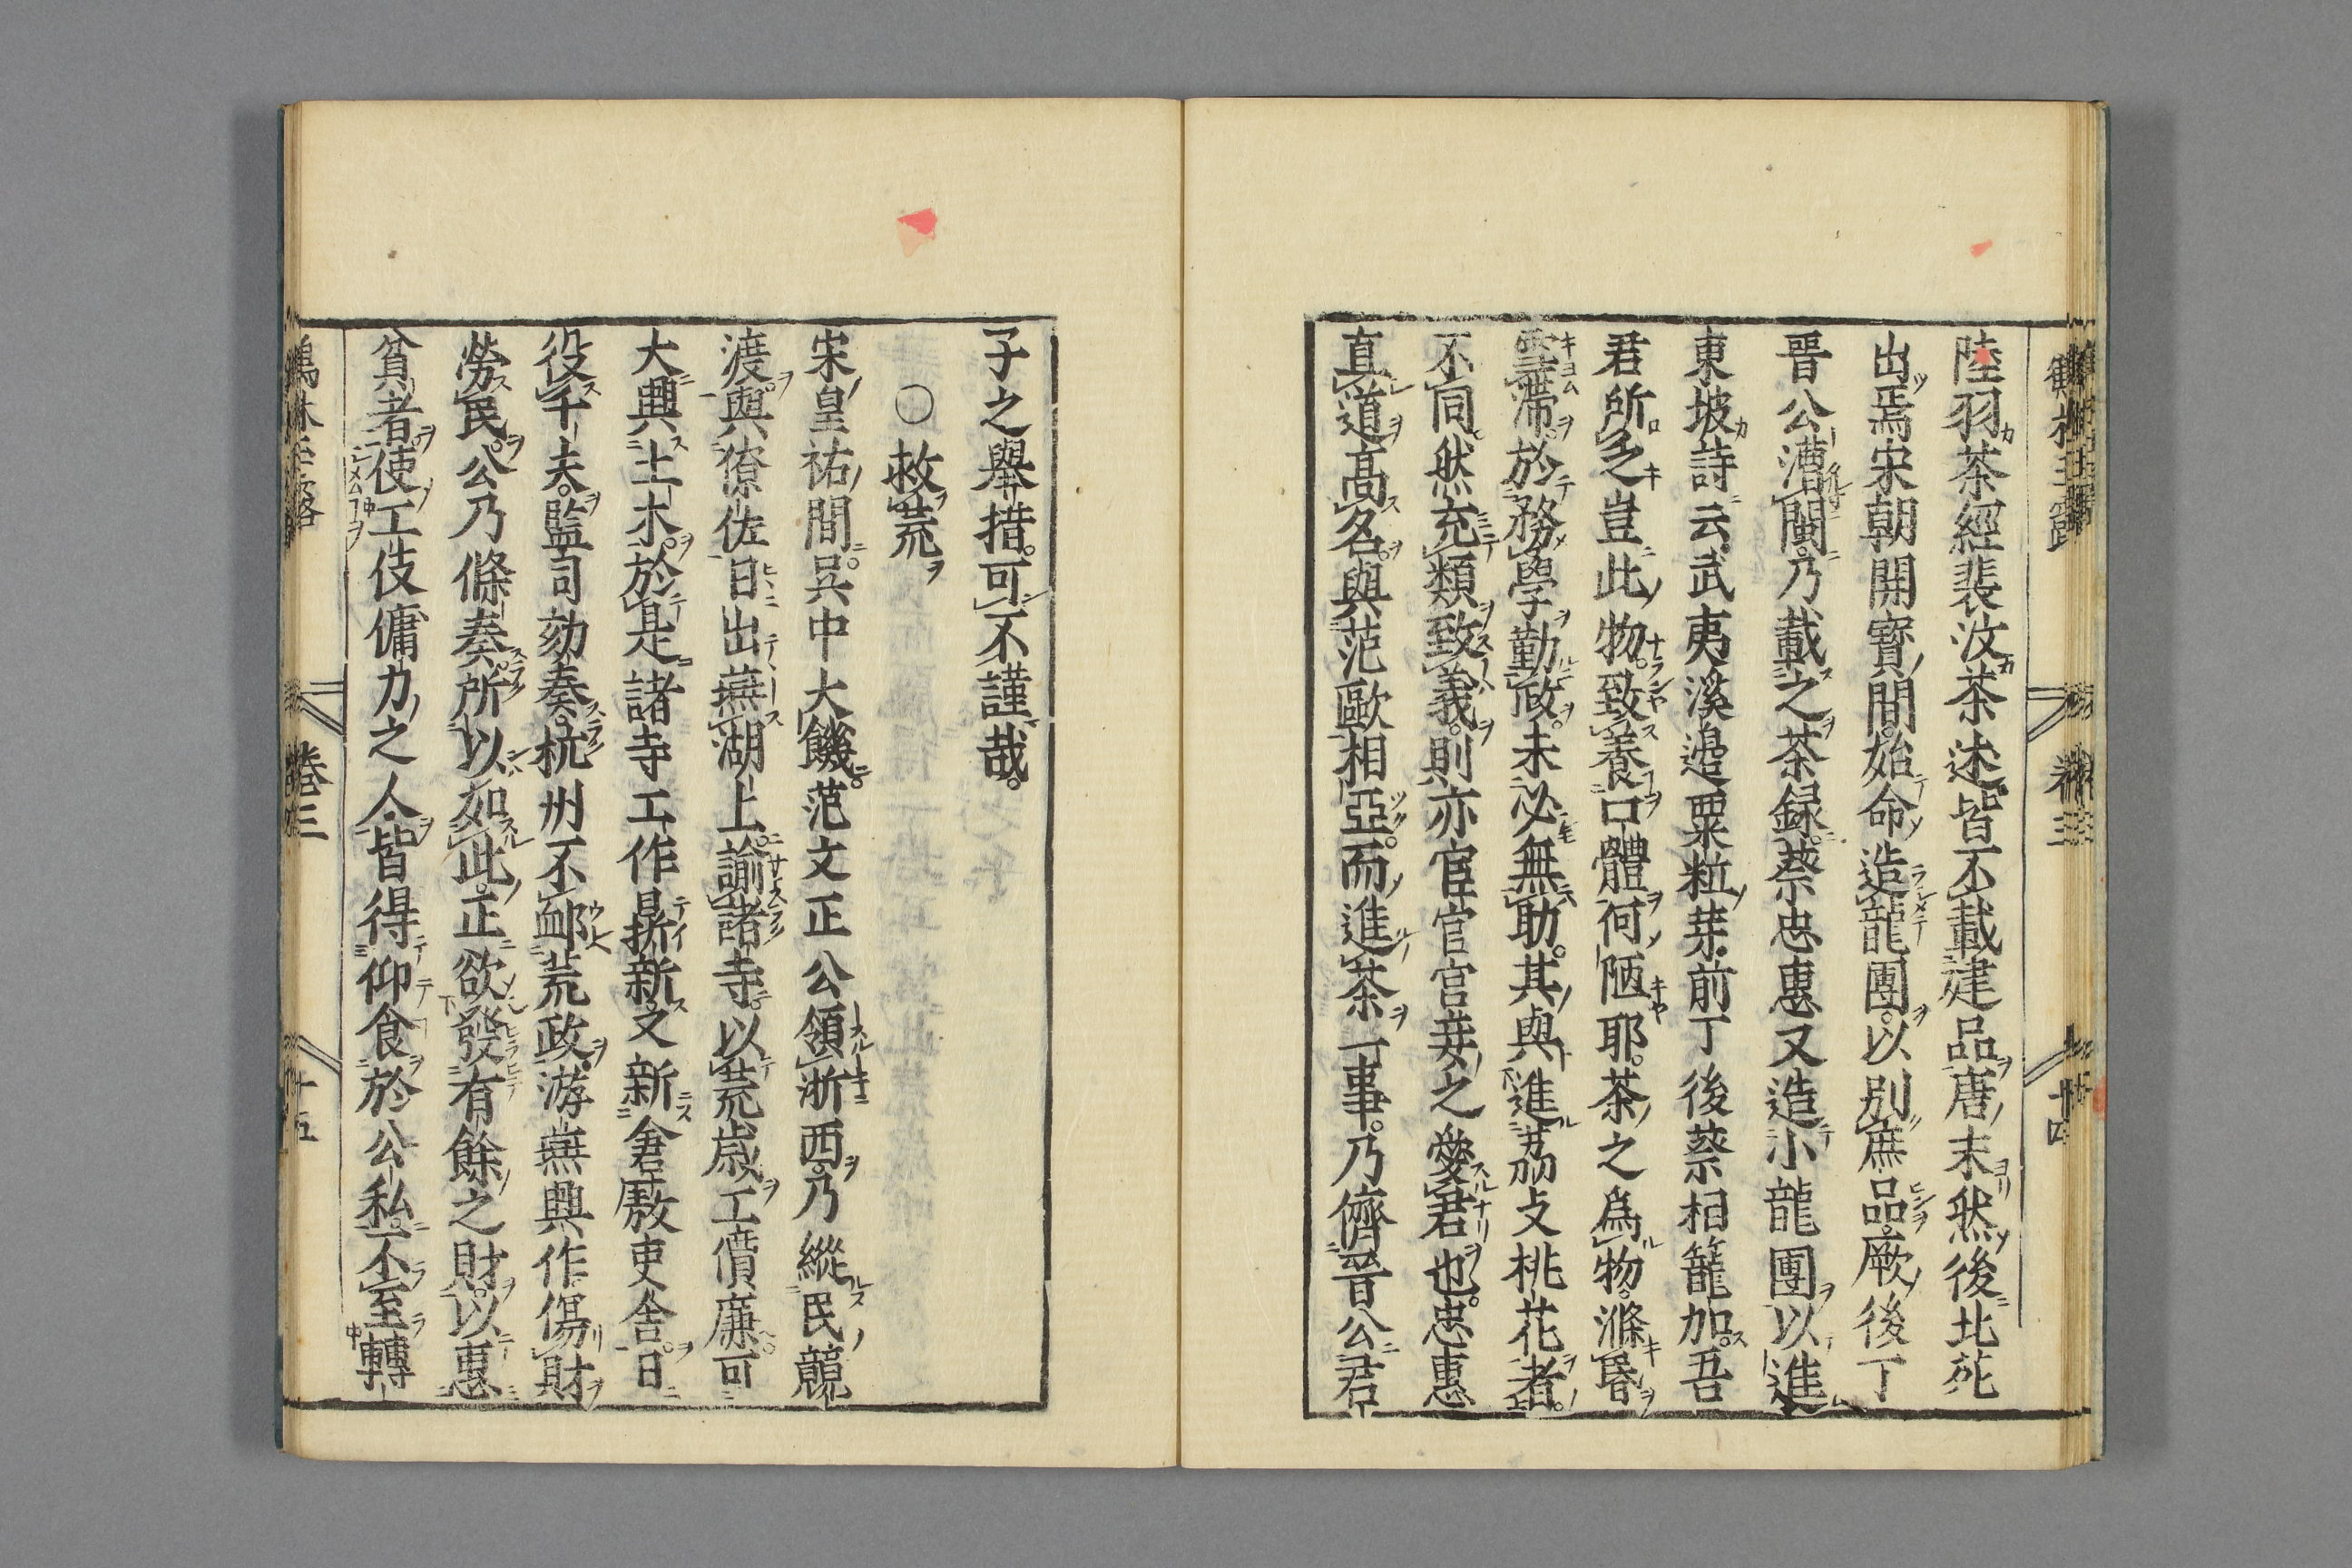 陸羽茶經裴汶茶述皆不載建品唐末然後北苑
出焉宋朝開寶間始命造龍團以別庶品厥後丁
晉公漕閩乃載之茶録蔡忠惠又造小龍團以進
東坡詩云武夷溪邉粟粒芽前丁後蔡相籠加吾
君所乏豈此物致養口體何陋耶茶之爲物滌昏
雪滯於務學勤政未必無助其與進茘支桃花者
不同然充類致義則亦宦官宫妾之愛君也忠惠
直道髙名與范歐相亞而進茶一事乃儕晉公君
子之舉措可不謹哉
○救荒
宋皇祐間吳中大饑范文正公領浙西乃縱民競
渡與僚佐日出燕湖上諭諸寺以荒歳工價廉可
大興土木於是諸寺工作鼎新又新倉廒吏舎日
役千夫監司劾奏杭州不䘏荒政游燕興作傷財
勞民公乃條奏所以如此正欲發有餘之財以惠
貧者使工伎傭力之人皆得仰食於公私不至轉
卷三